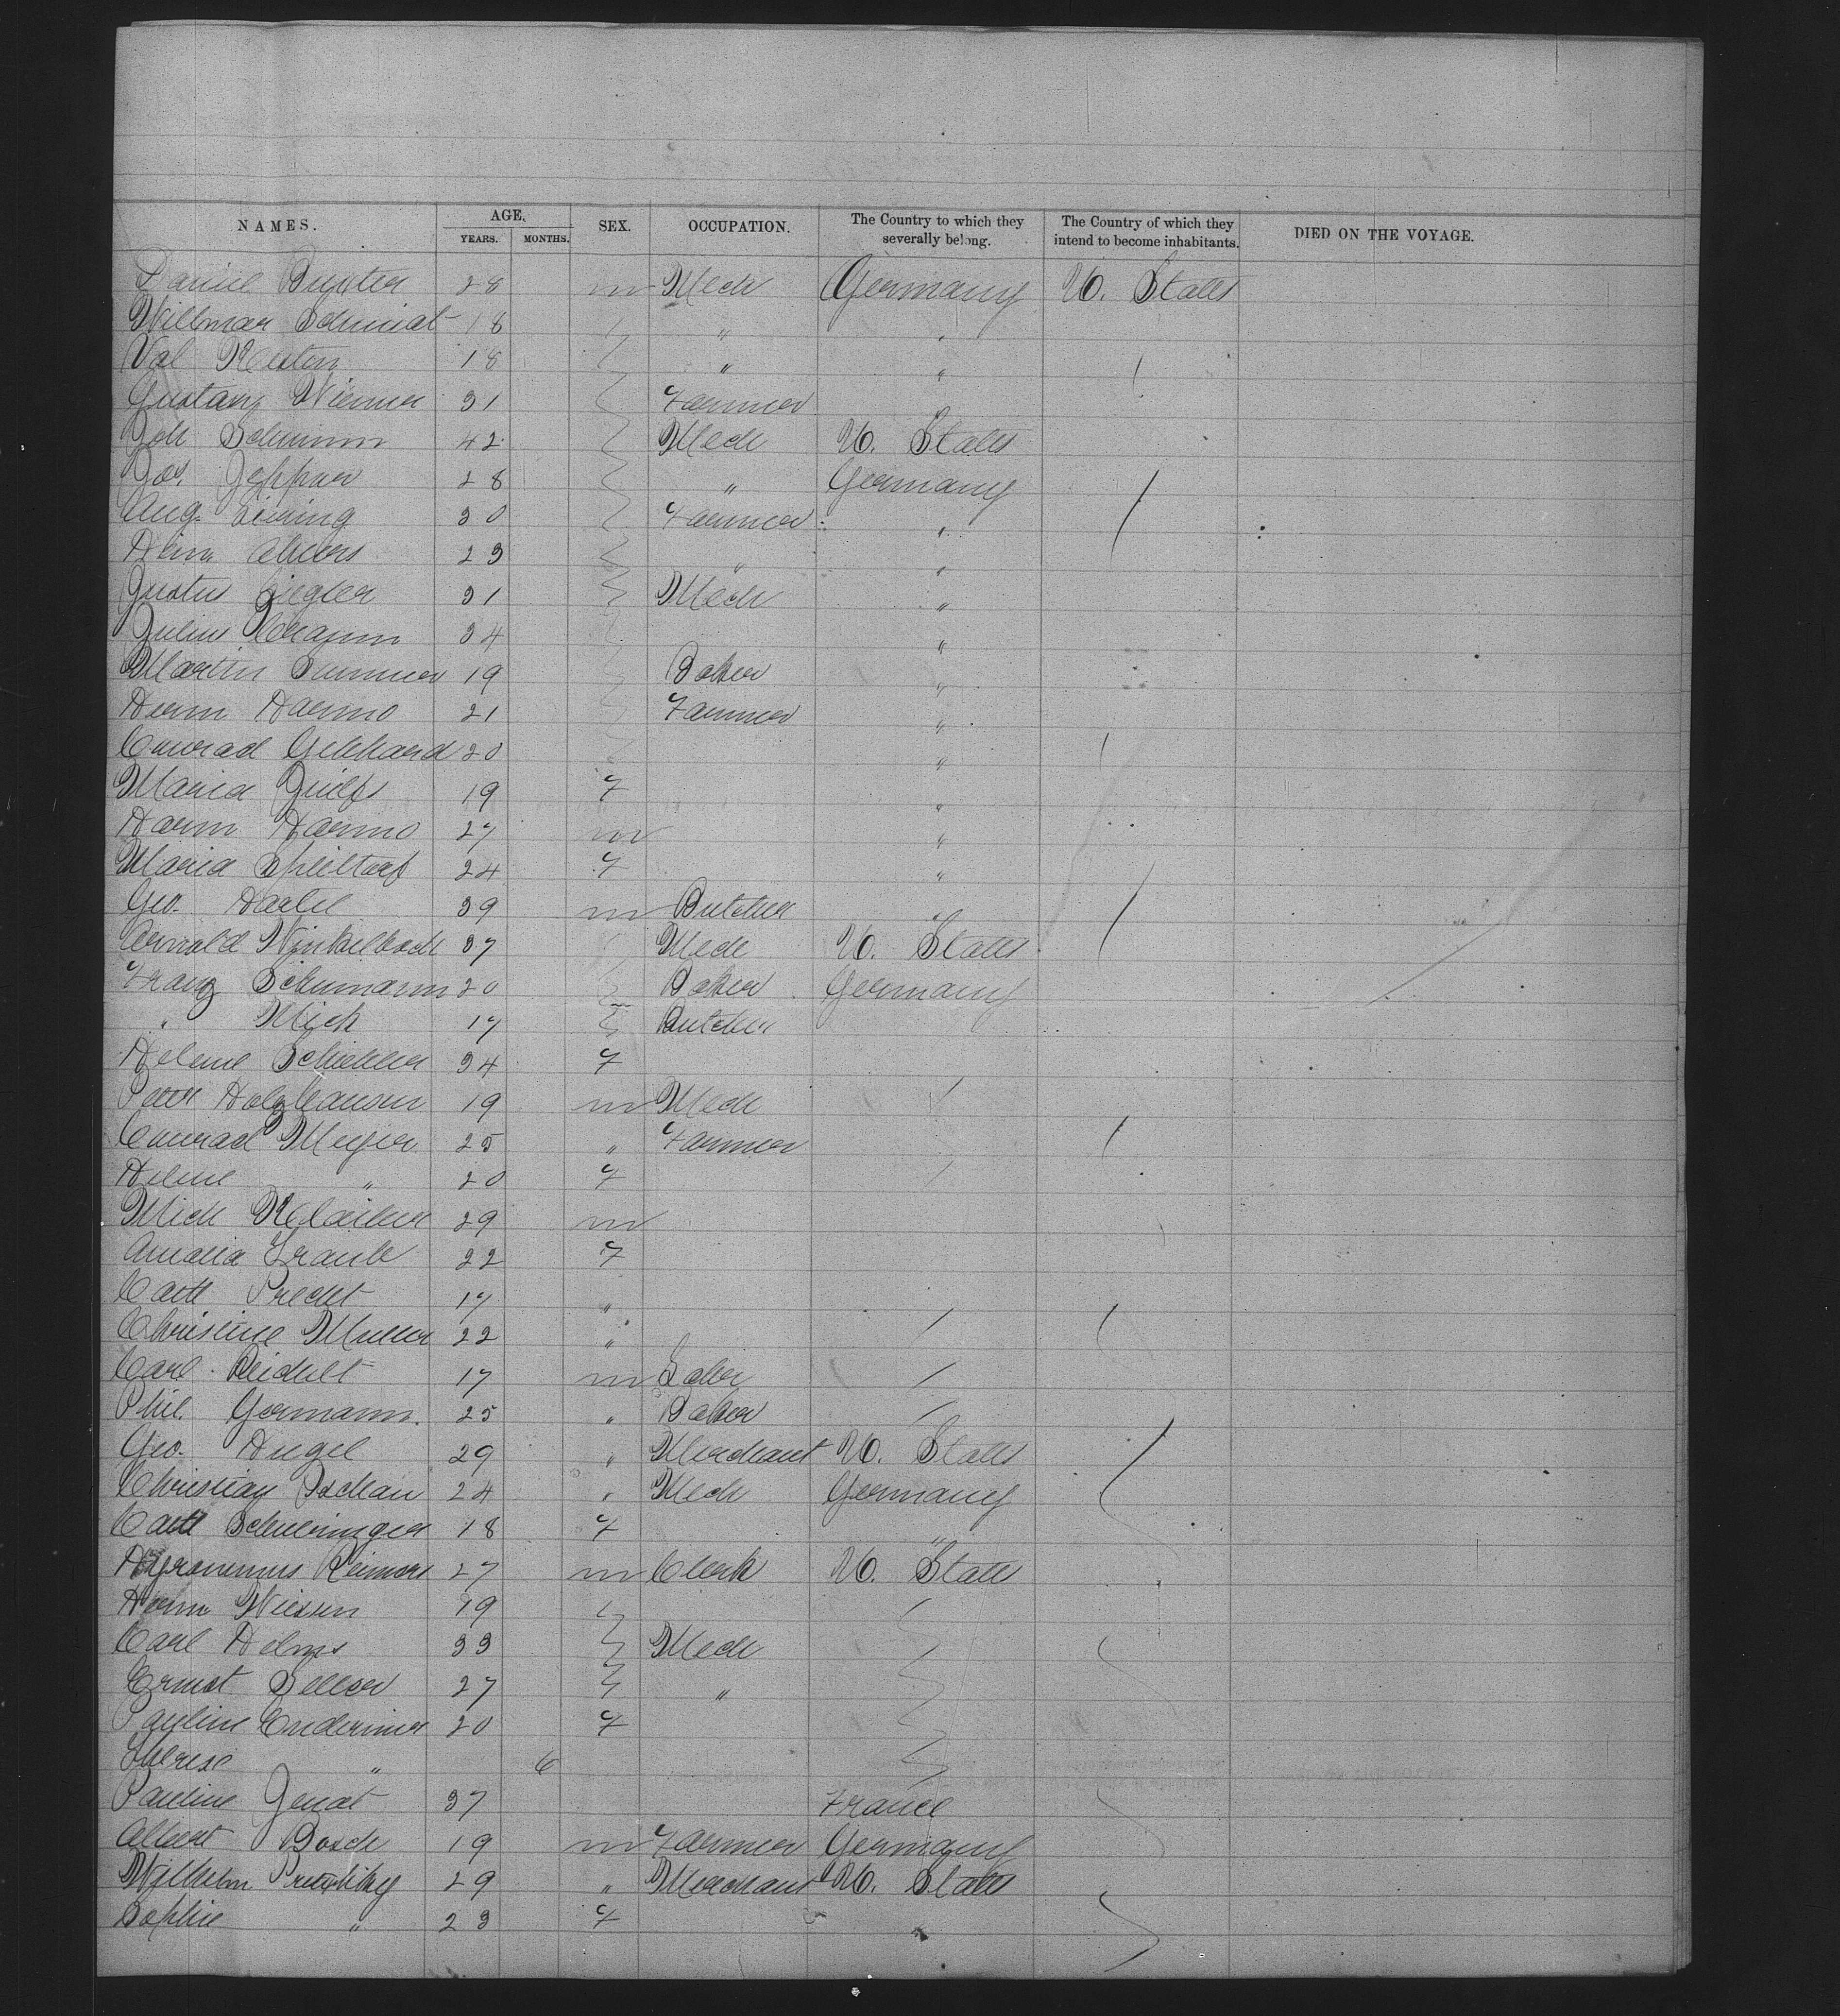 NAMES. AGE. YEARS. MONTHS. SEX. OCCUPATION. The Country to which they severally belong. The Country of which they intend to become inhabitants. DIED ON THE VOYAGE.
Daniel 28 m Mech Germany U. States
Willmar Schmidt 18 " "
Val 18 " "
Gustang Wiemer 31 Farmer "
Joh Schumm 42 Mech U. States
Jos. Jeppner 28 " Germany
Aug. 30 Farmer "
Heinr. Ahlers 23 " "
Justus Ziegler 31 Mech "
Julius 34 "
Martin Summer 19 Baker "
Herm Harms 21 Farmer "
Conrad Gebhard 20 "
Maria 19 f "
Harm Harms 27 m "
Maria 24 f "
Geo. Hartel 39 m Butcher "
Arnold Winkelbach 37 Mech U. States
Franz Schumann 20 Baker Germany
" Mich 17 Butcher
Helene 34 f
Peter Holzhauser 19 m Mech
Conrad Meyer 25 " Farmer
Helene " 20 f
Mich 29 m
Amalia Traub 22 f
Cath Precht 17 "
Christine Muller 22 "
Carl 17 m Labr
Phil. Germann. 25 " Baker
Geo. Hugel 29 " Merchant U. States
Christian 24 " Mech Germany
Cath 18 f "
Hyronimus Reimers 27 m Clerk U. States
Herm Niessen 19
Carl Helms 33 Mech
Ernst Seller 27 "
Pauline Enderimer 20 f
Therese " 6
Pauline 37 France
Albert Bosch 19 m Farmer Germany
Wilhelm 29 " Merchant U. States
Sophie " 23 f "